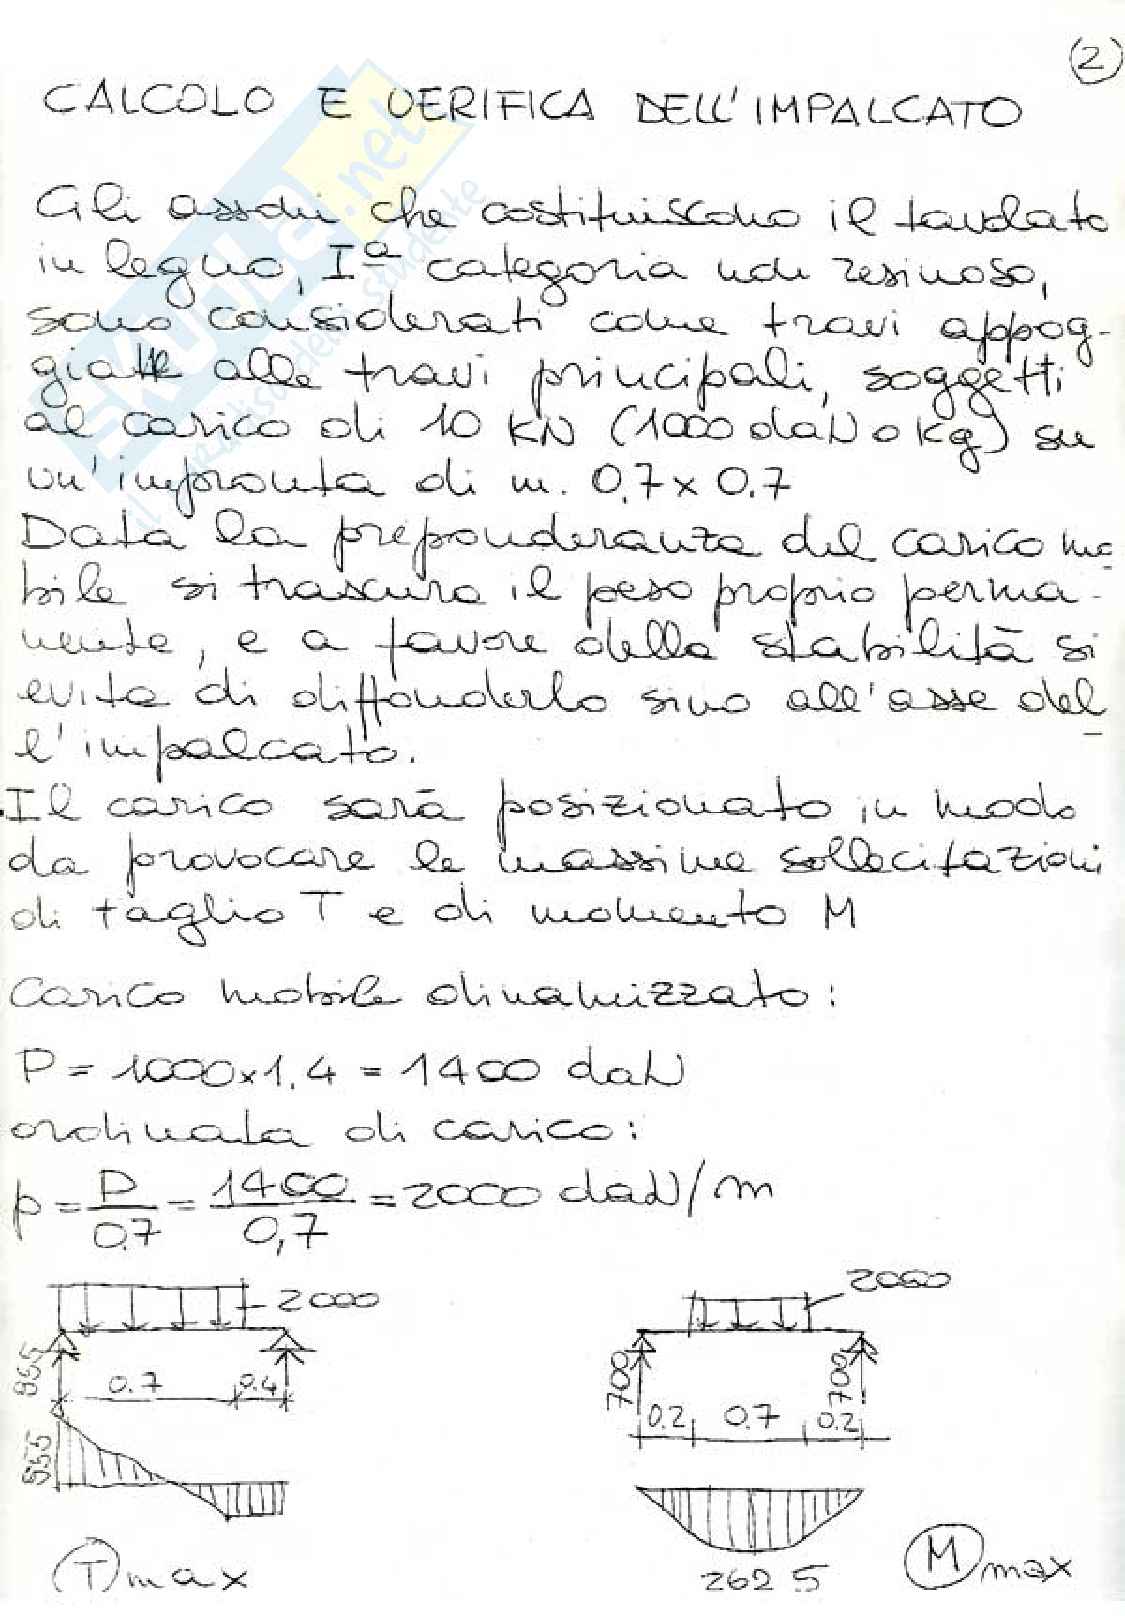 2
CALCOLO E VERIFICA DELL'IMPALCATO
Gli assoni che costituiscono il tavolato
in legno, Iª categoria non resinoso,
sono considerati come travi appog-
giate alle travi principali, soggetti
al carico di 10 KN (1000 daN o kg) su
un'impronta di m. 0,7 x 0.7
Data la preponderanza del carico mo
bile si trascura il peso proprio perma-
nente, e a favore della stabilità si
evita di diffonderlo sino all'asse del
l'impalcato.
Il carico sarà posizionato in modo
da provocare le massime sollecitazioni
di taglio T e di momento M
Carico mobile dinamizzato:
P = 1000x1.4 = 1400 daN
ordinata di carico:
p = P/0.7 = 1400/0,7 = 2000 daN/m
2000
2000
955
0.7
0.4
700
700
0.2
0.7
0.2
955
T max
262 5
M max
skuola.net
il paradiso dello studente